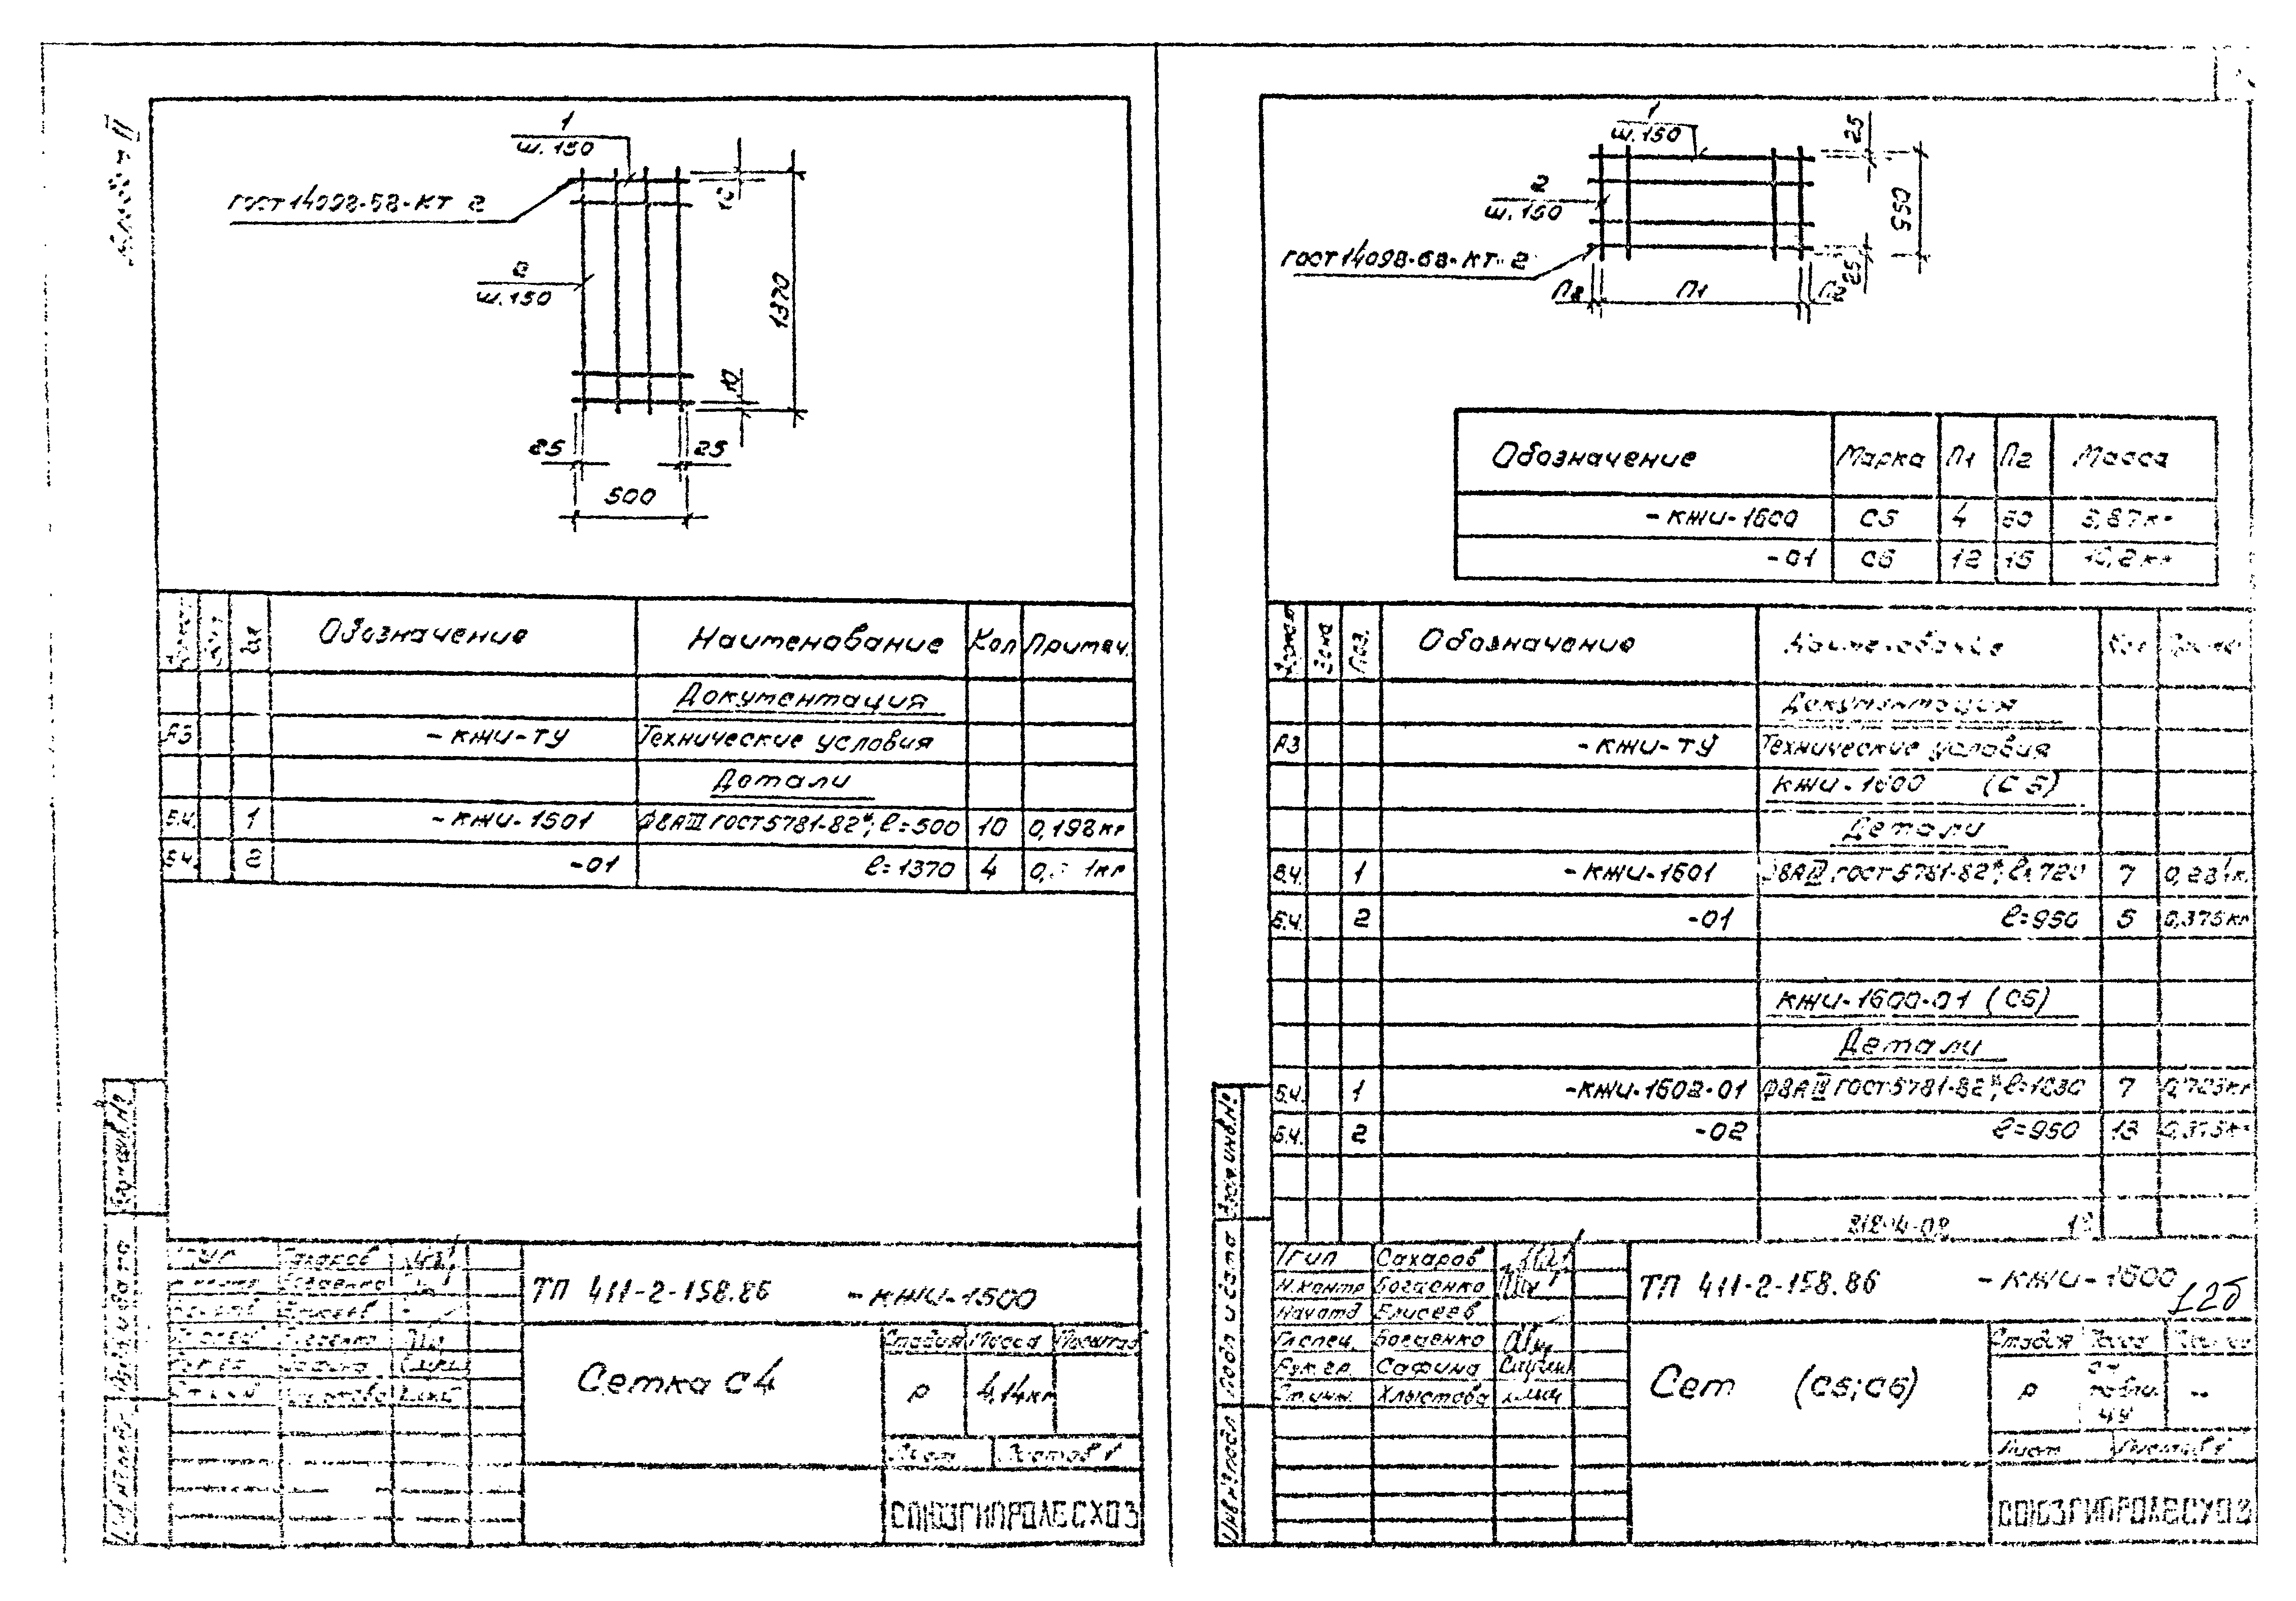 Альбом II
1
ш.150
ГОСТ 14098-68-КТ 2
2
ш.150
10
1370
10
25
25
500
Обозначение Наименование Кол Примеч.
Документация
А3 -КЖИ-ТУ Технические условия
Детали
Б.Ч. 1 -КЖИ-1501 Ф8АIII ГОСТ 5781-82*; ℓ=500 10 0,198кг
Б.Ч. 2 -01 ℓ=1370 4
Взам.инв.№
Подп. и дата
ТП 411-2-158.86 -КЖИ-1500
Сетка С4
Стадия Масса Масштаб
Р 4,14кг
Лист Листов 1
СОЮЗГИПРОЛЕСХОЗ
1
ш.150
25
2
ш.150
950
ГОСТ 14098-68-КТ-2
25
П2 П1 П2
Обозначение Марка П1 П2 Масса
-КЖИ-1600 С5 4 60
-01 С6 12 15 10,2кг
Формат Зона Поз. Обозначение Наименование Кол Примеч.
Документация
А3 -КЖИ-ТУ Технические условия
КЖИ-1600 (С5)
Детали
Б.Ч. 1 -КЖИ-1601 Ф8АIII ГОСТ 5781-82*; ℓ=720 7
Б.Ч. 2 -01 ℓ=950 5 0,375кг
КЖИ-1600-01 (С6)
Детали
Б.Ч. 1 -КЖИ-1602-01 Ф8АIII ГОСТ 5781-82*; 7
Б.Ч. 2 -02 ℓ=950 13 0,375кг
Взам.инв.№
Подп и дата
Инв №подл
ГИП Сахаров
Н.контр Богденко
Нач отд Елисеев
Гл.спец. Богденко
Рук.гр. Сафина
Ст.инж. Хлыстова
ТП 411-2-158.86 -КЖИ-1600
126
Сет (С5;С6)
Стадия Масса
Р СТ табли це --
Лист Листов 1
СОЮЗГИПРОЛЕСХОЗ